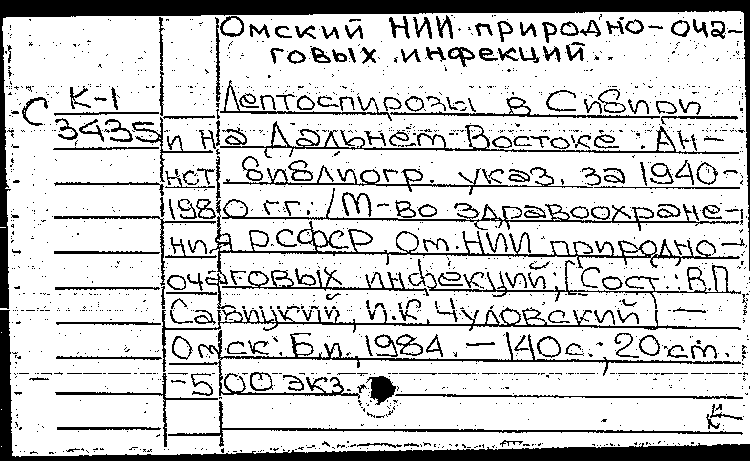 Омский НИИ природно-оча-
говых инфекций.
С К-1
3435
Лептоспирозы в Сибири
и на Дальнем Востоке: Ан-
нот. библиогр. указ. за 1940-
1980 гг. /М-во здравоохране-
ния РСФСР, Ом. НИИ природно-
очаговых инфекций; [Сост.: В.П.
Савицкий, И.К. Чуловский] —
Омск: Б.и., 1984. — 140 с.; 20 см.
-500 экз.